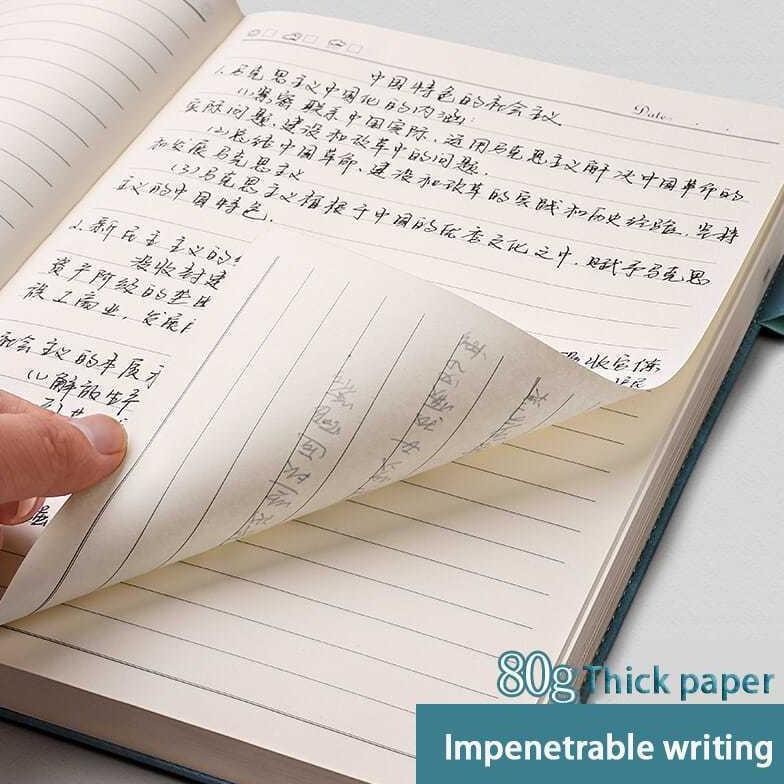 Date:
中国特色的社会主义
1.马克思主义中国化的内涵:
(1)紧密联系中国实际,运用马克思主义解决中国革命的
实际问题、建设和改革中的问题.
(2)总结中国革命、建设和改革的实践和历史经验,坚持
和发展马克思主义
(3)马克思主义植根于中国的优秀文化之中,赋予马克思
主义的中国特色.
2.新民主主义的
没收封建
资产阶级的垄
族工商业,发展
社会主义的本质
(1)解放生产
80g Thick paper
Impenetrable writing